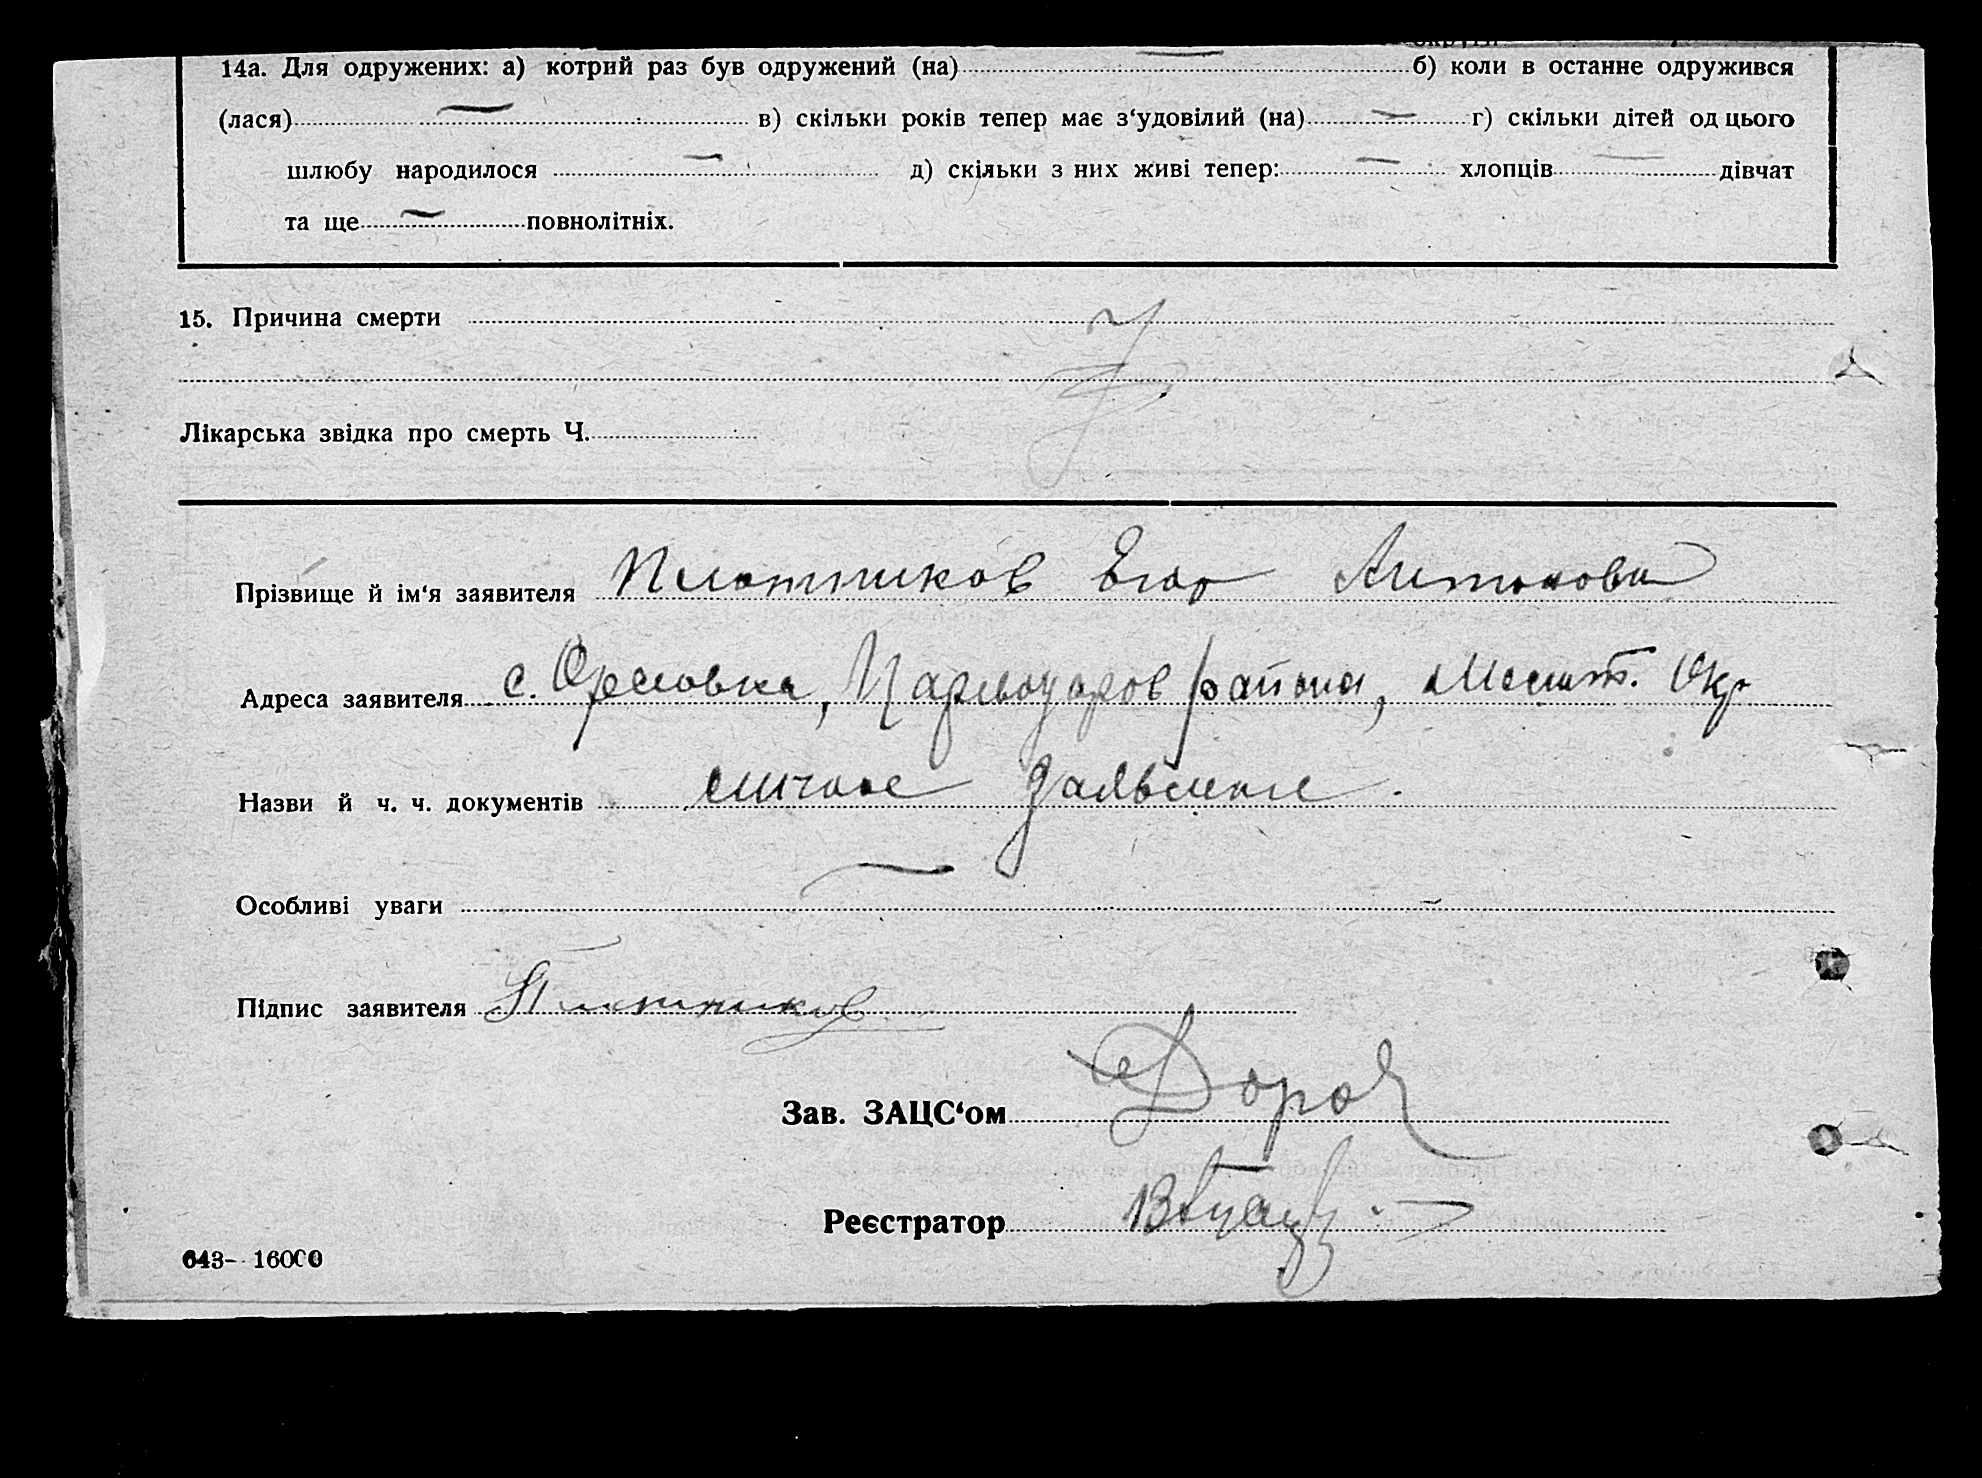 14а. Для одружених: а) котрий раз був одружений (на) — б) коли в останне одружився
(лася) — в) скільки років тепер має з‘удовілий (на) — г) скільки дітей од цього
шлюбу народилося — д) скільки з них живі тепер: — хлопців — дівчат
та ще — повнолітніх.
15. Причина смерти
Лікарська звідка про смерть Ч.
Прізвище й ім‘я заявителя Плотников Егор Антонови
Адреса заявителя с. Орловка, района, Мелит. Окр
Назви й ч. ч. документів личное заявление.
Особливі уваги —
Підпис заявителя Плотников
Зав. ЗАЦС‘ом
Реєстратор
643- 16000